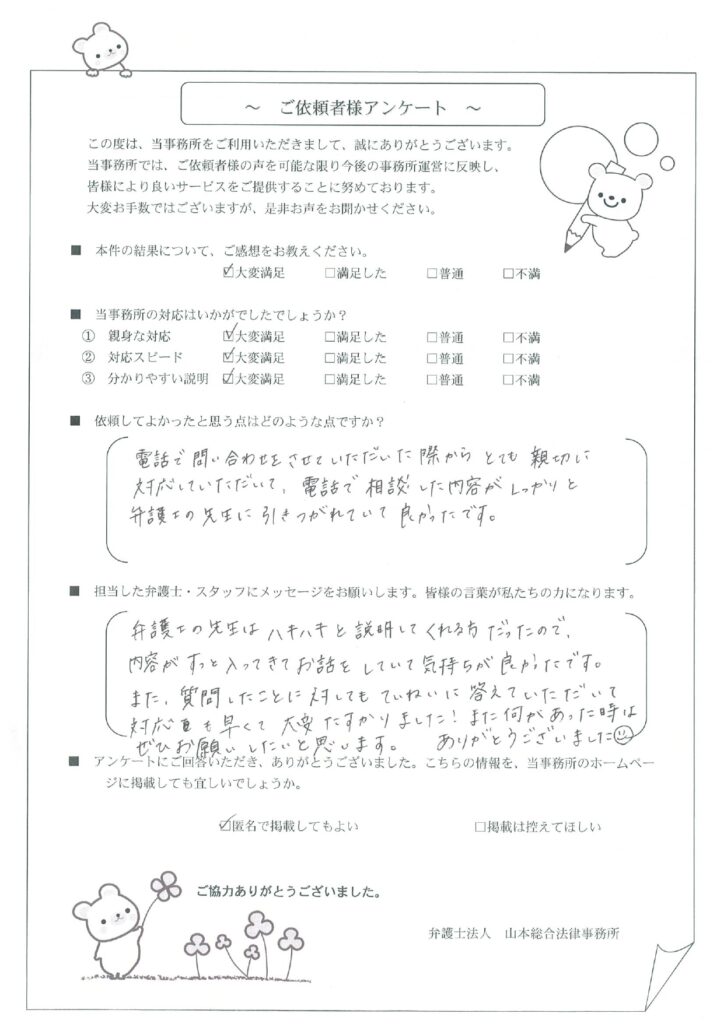 ～ ご依頼者様アンケート ～
この度は、当事務所をご利用いただきまして、誠にありがとうございます。
当事務所では、ご依頼者様の声を可能な限り今後の事務所運営に反映し、
皆様により良いサービスをご提供することに努めております。
大変お手数ではございますが、是非お声をお聞かせください。
■ 本件の結果について、ご感想をお教えください。
☑大変満足 □満足した □普通 □不満
■ 当事務所の対応はいかがでしたでしょうか？
① 親身な対応 ☑大変満足 □満足した □普通 □不満
② 対応スピード ☑大変満足 □満足した □普通 □不満
③ 分かりやすい説明 ☑大変満足 □満足した □普通 □不満
■ 依頼してよかったと思う点はどのような点ですか？
電話で問い合わせをさせていただいた際からとても親切に
対応していただいて、電話で相談した内容がしっかりと
弁護士の先生に引きつがれていて良かったです。
■ 担当した弁護士・スタッフにメッセージをお願いします。皆様の言葉が私たちの力になります。
弁護士の先生はハキハキと説明してくれる方だったので、
内容がすっと入ってきてお話をしていて気持ちが良かったです。
また、質問したことに対してもていねいに答えていただいて
対応も早くて大変たすかりました！また何かあった時は
ぜひお願いしたいと思います。 ありがとうございました
■ アンケートにご回答いただき、ありがとうございました。こちらの情報を、当事務所のホームペー
ジに掲載しても宜しいでしょうか。
☑匿名で掲載してもよい □掲載は控えてほしい
ご協力ありがとうございました。
弁護士法人 山本総合法律事務所